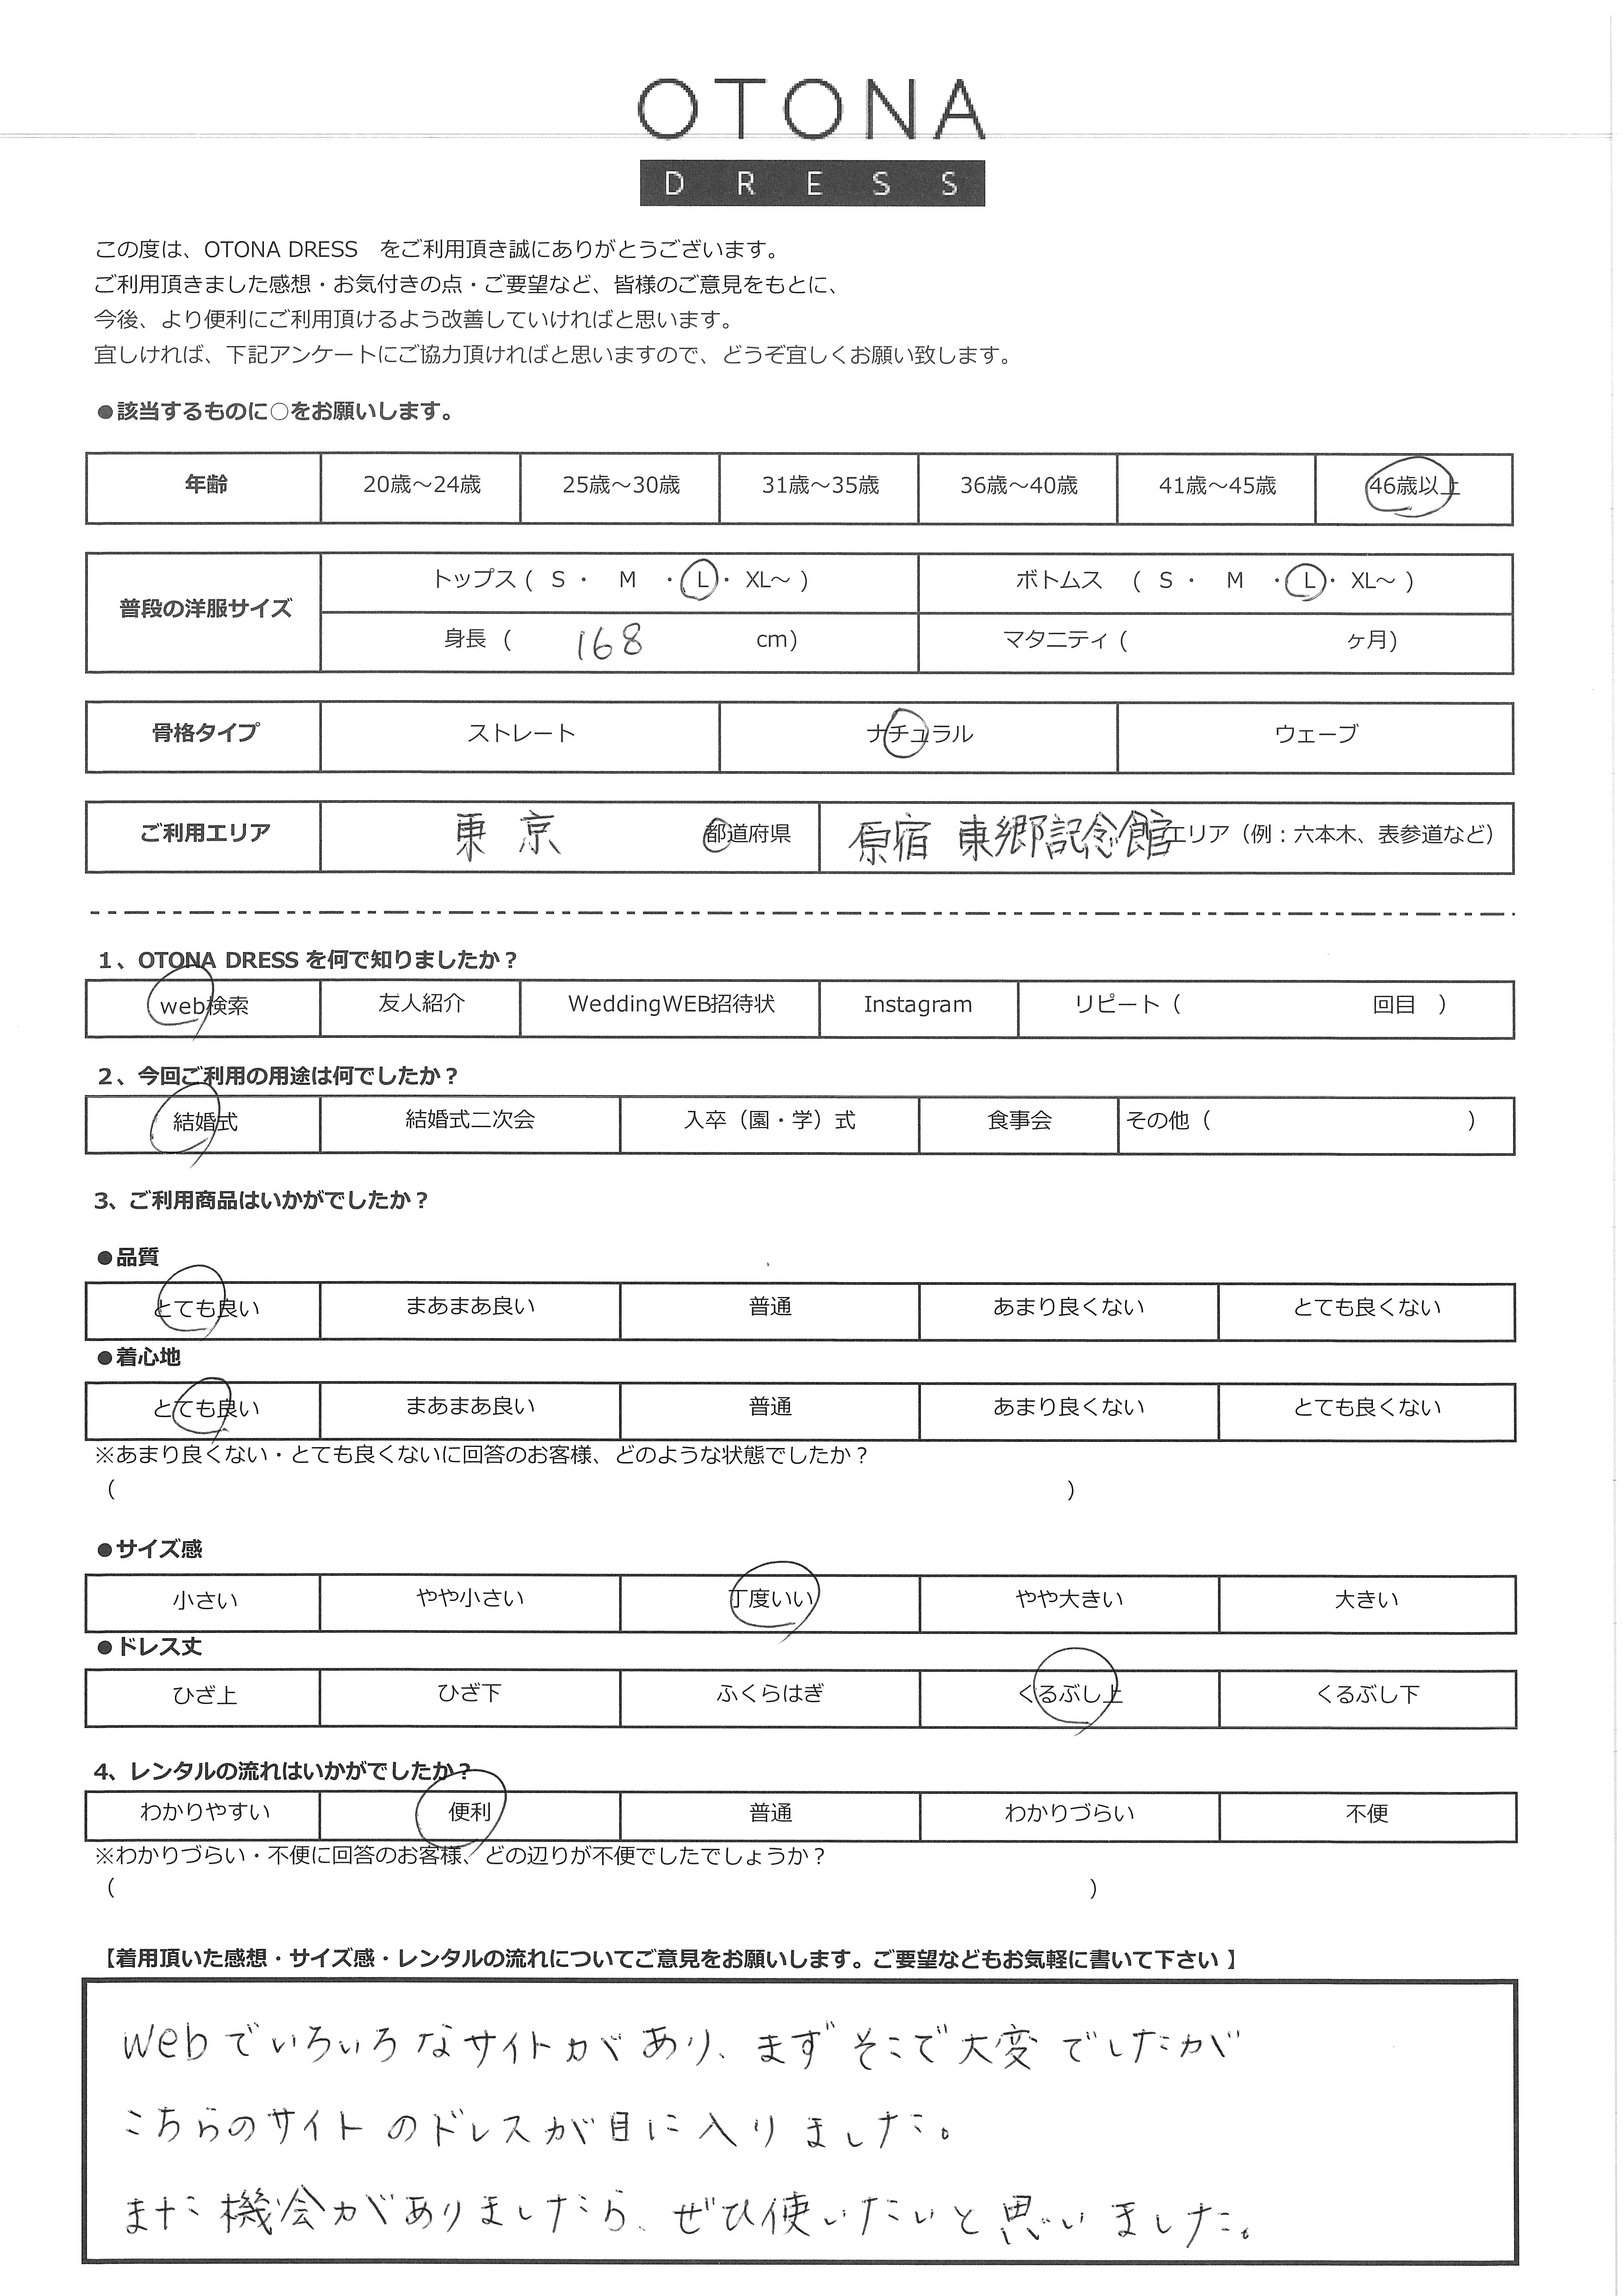 OTONA
DRESS
この度は、OTONA DRESS　をご利用頂き誠にありがとうございます。
ご利用頂きました感想・お気付きの点・ご要望など、皆様のご意見をもとに、
今後、より便利にご利用頂けるよう改善していければと思います。
宜しければ、下記アンケートにご協力頂ければと思いますので、どうぞ宜しくお願い致します。
●該当するものに○をお願いします。
年齢 20歳～24歳 25歳～30歳 31歳～35歳 36歳～40歳 41歳～45歳 46歳以上
普段の洋服サイズ トップス ( S ・ M ・ L ・ XL～ ) ボトムス ( S ・ M ・ L ・ XL～ )
身長 ( 168 cm) マタニティ ( ヶ月)
骨格タイプ ストレート ナチュラル ウェーブ
ご利用エリア 東京 都道府県 原宿 東郷記念館 エリア（例：六本木、表参道など）
1、OTONA DRESS を何で知りましたか？
web検索 友人紹介 WeddingWEB招待状 Instagram リピート（ 回目 ）
2、今回ご利用の用途は何でしたか？
結婚式 結婚式二次会 入卒（園・学）式 食事会 その他（ ）
3、ご利用商品はいかがでしたか？
●品質
とても良い まあまあ良い 普通 あまり良くない とても良くない
●着心地
とても良い まあまあ良い 普通 あまり良くない とても良くない
※あまり良くない・とても良くないに回答のお客様、どのような状態でしたか？
（ ）
●サイズ感
小さい やや小さい 丁度いい やや大きい 大きい
●ドレス丈
ひざ上 ひざ下 ふくらはぎ くるぶし上 くるぶし下
4、レンタルの流れはいかがでしたか？
わかりやすい 便利 普通 わかりづらい 不便
※わかりづらい・不便に回答のお客様、どの辺りが不便でしたでしょうか？
（ ）
【着用頂いた感想・サイズ感・レンタルの流れについてご意見をお願いします。ご要望などもお気軽に書いて下さい 】
webでいろいろなサイトがあり、まずそこで大変でしたが
こちらのサイトのドレスが目に入りました。
また機会がありましたら、ぜひ使いたいと思いました。